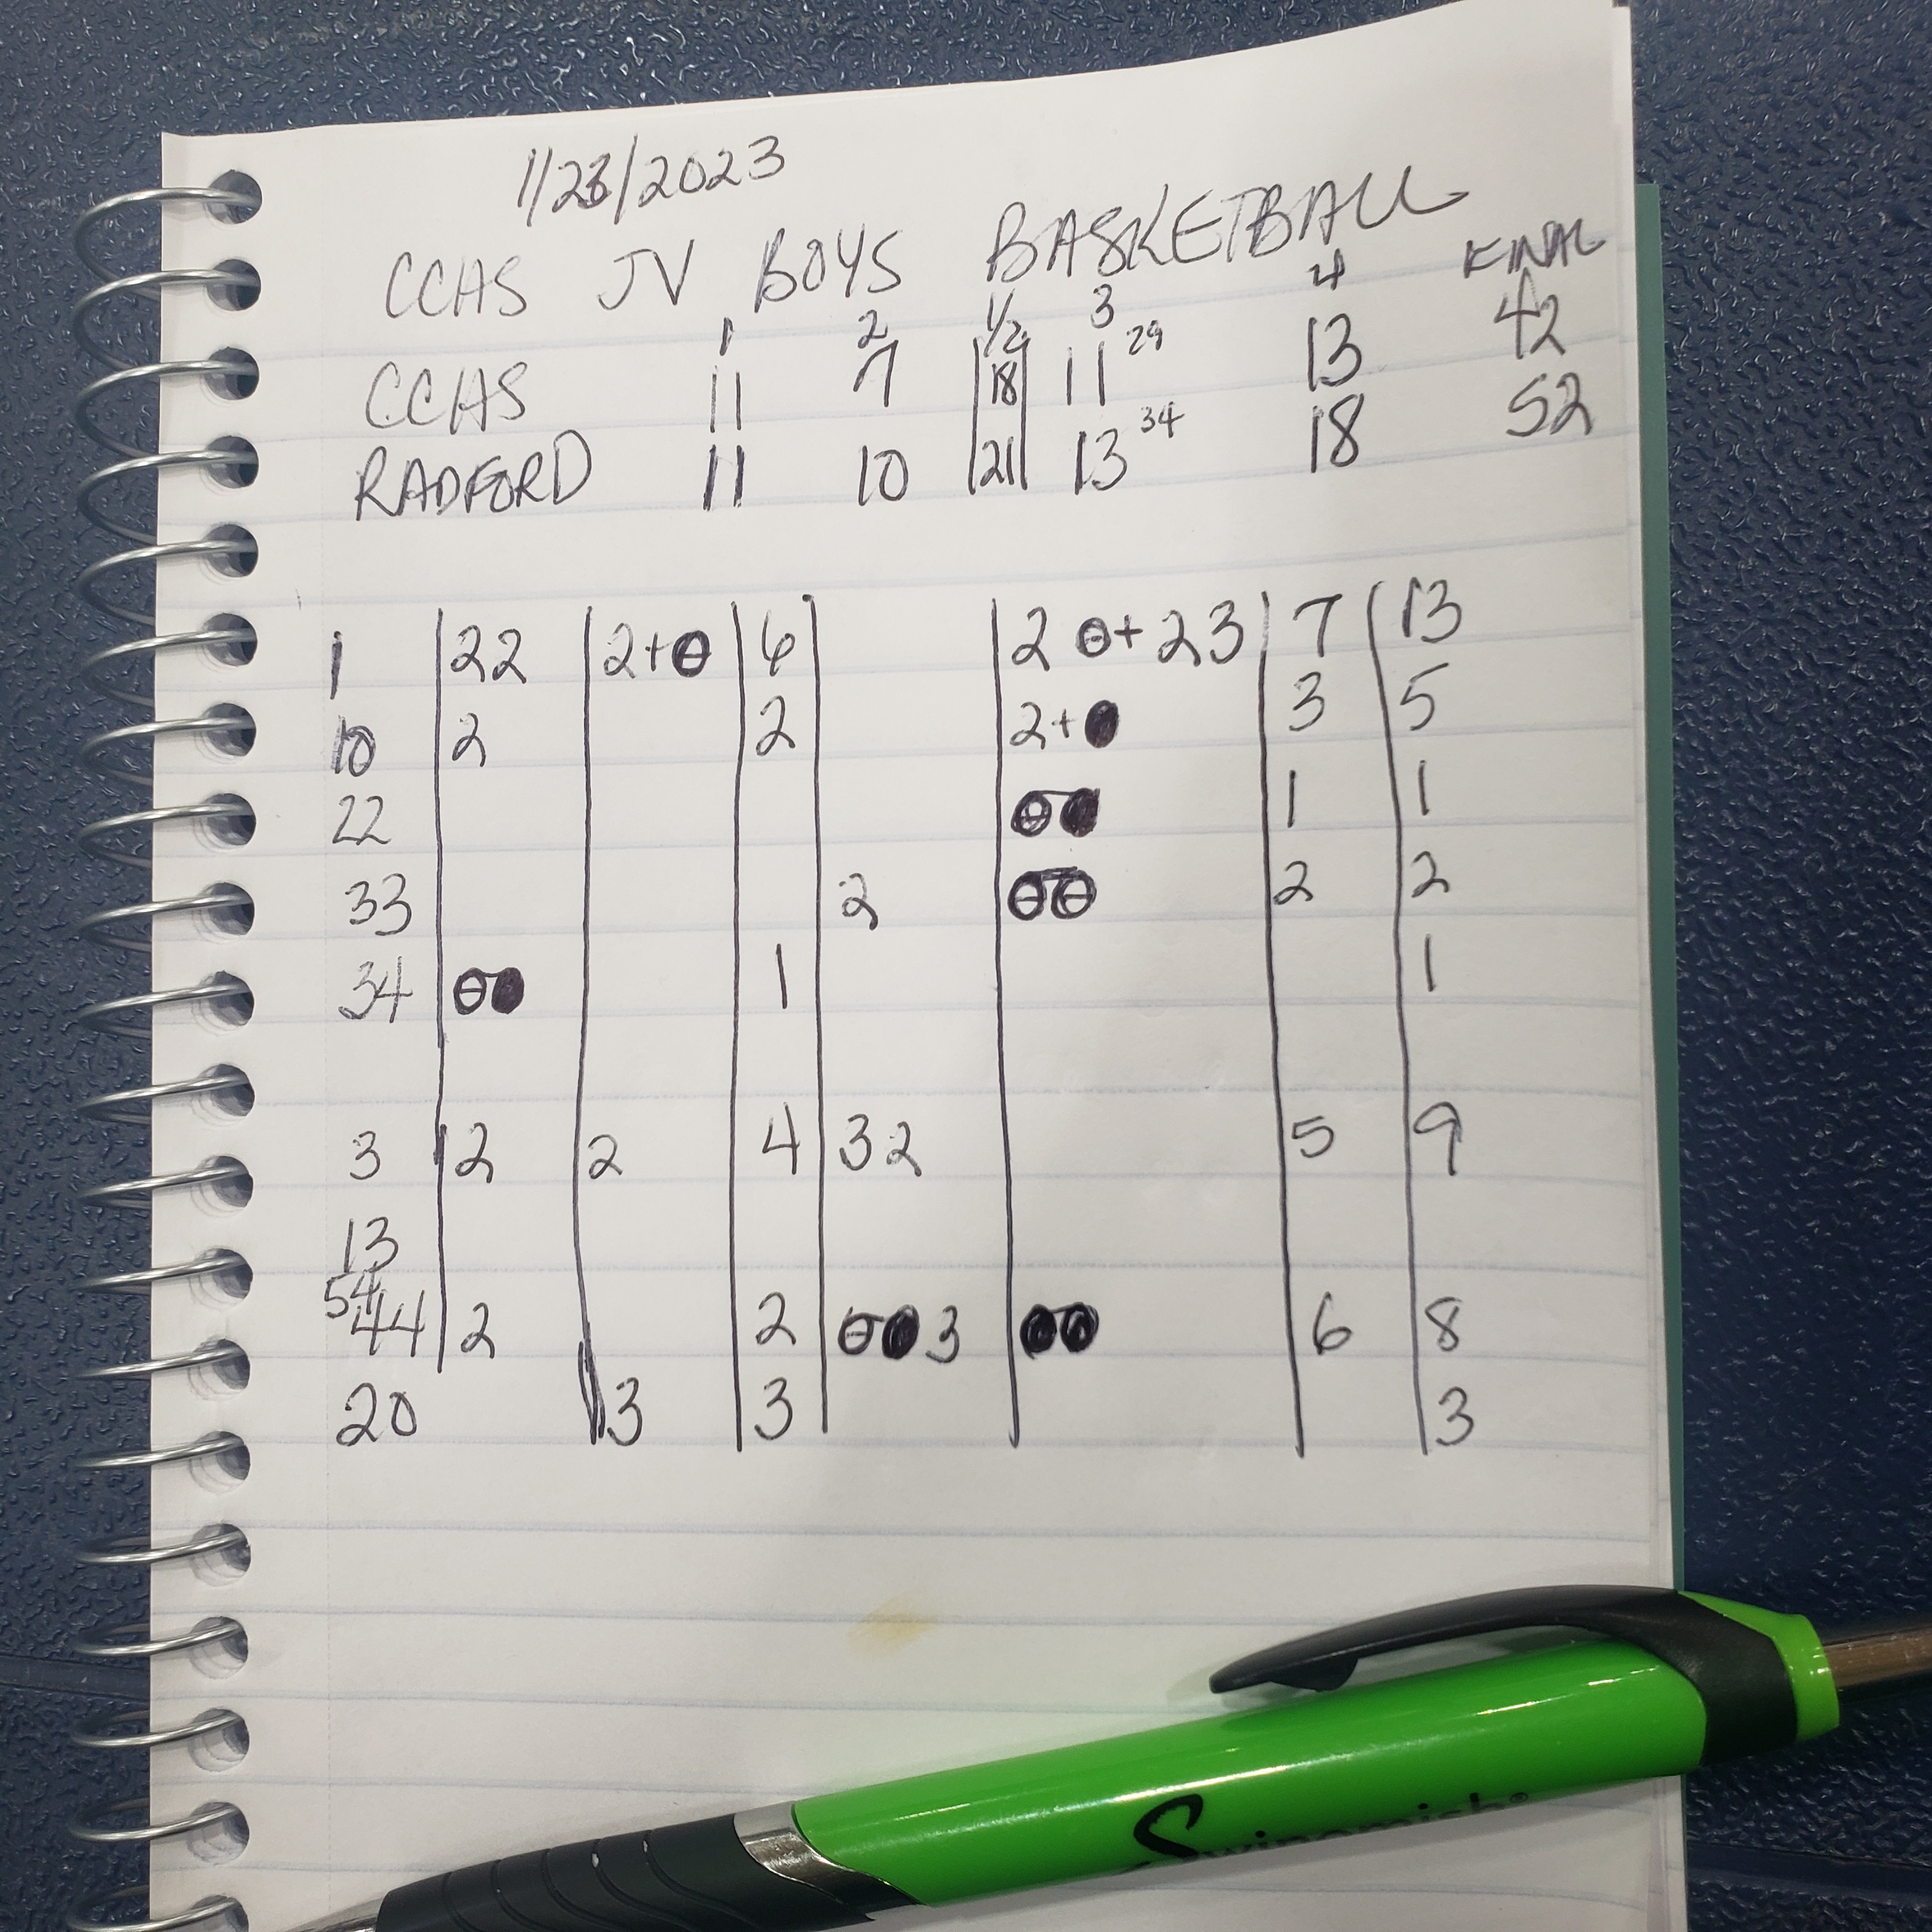 1/23/2023
CCHS JV BOYS BASKETBALL
1 2 1/2 3 4 FINAL
CCHS 11 7 18 11 29 13 42
RADFORD 11 10 21 13 34 18 52
1 22 2+⊖ 6 2 ⊖+ 23 7 13
10 2 2 2+● 3 5
22 ⊖● 1 1
33 2 ⊖⊖ 2 2
34 ⊖● 1 1
3 2 2 4 32 5 9
13
54
44 2 2 ⊖● 3 ●● 6 8
20 3 3 3
Swinomish®